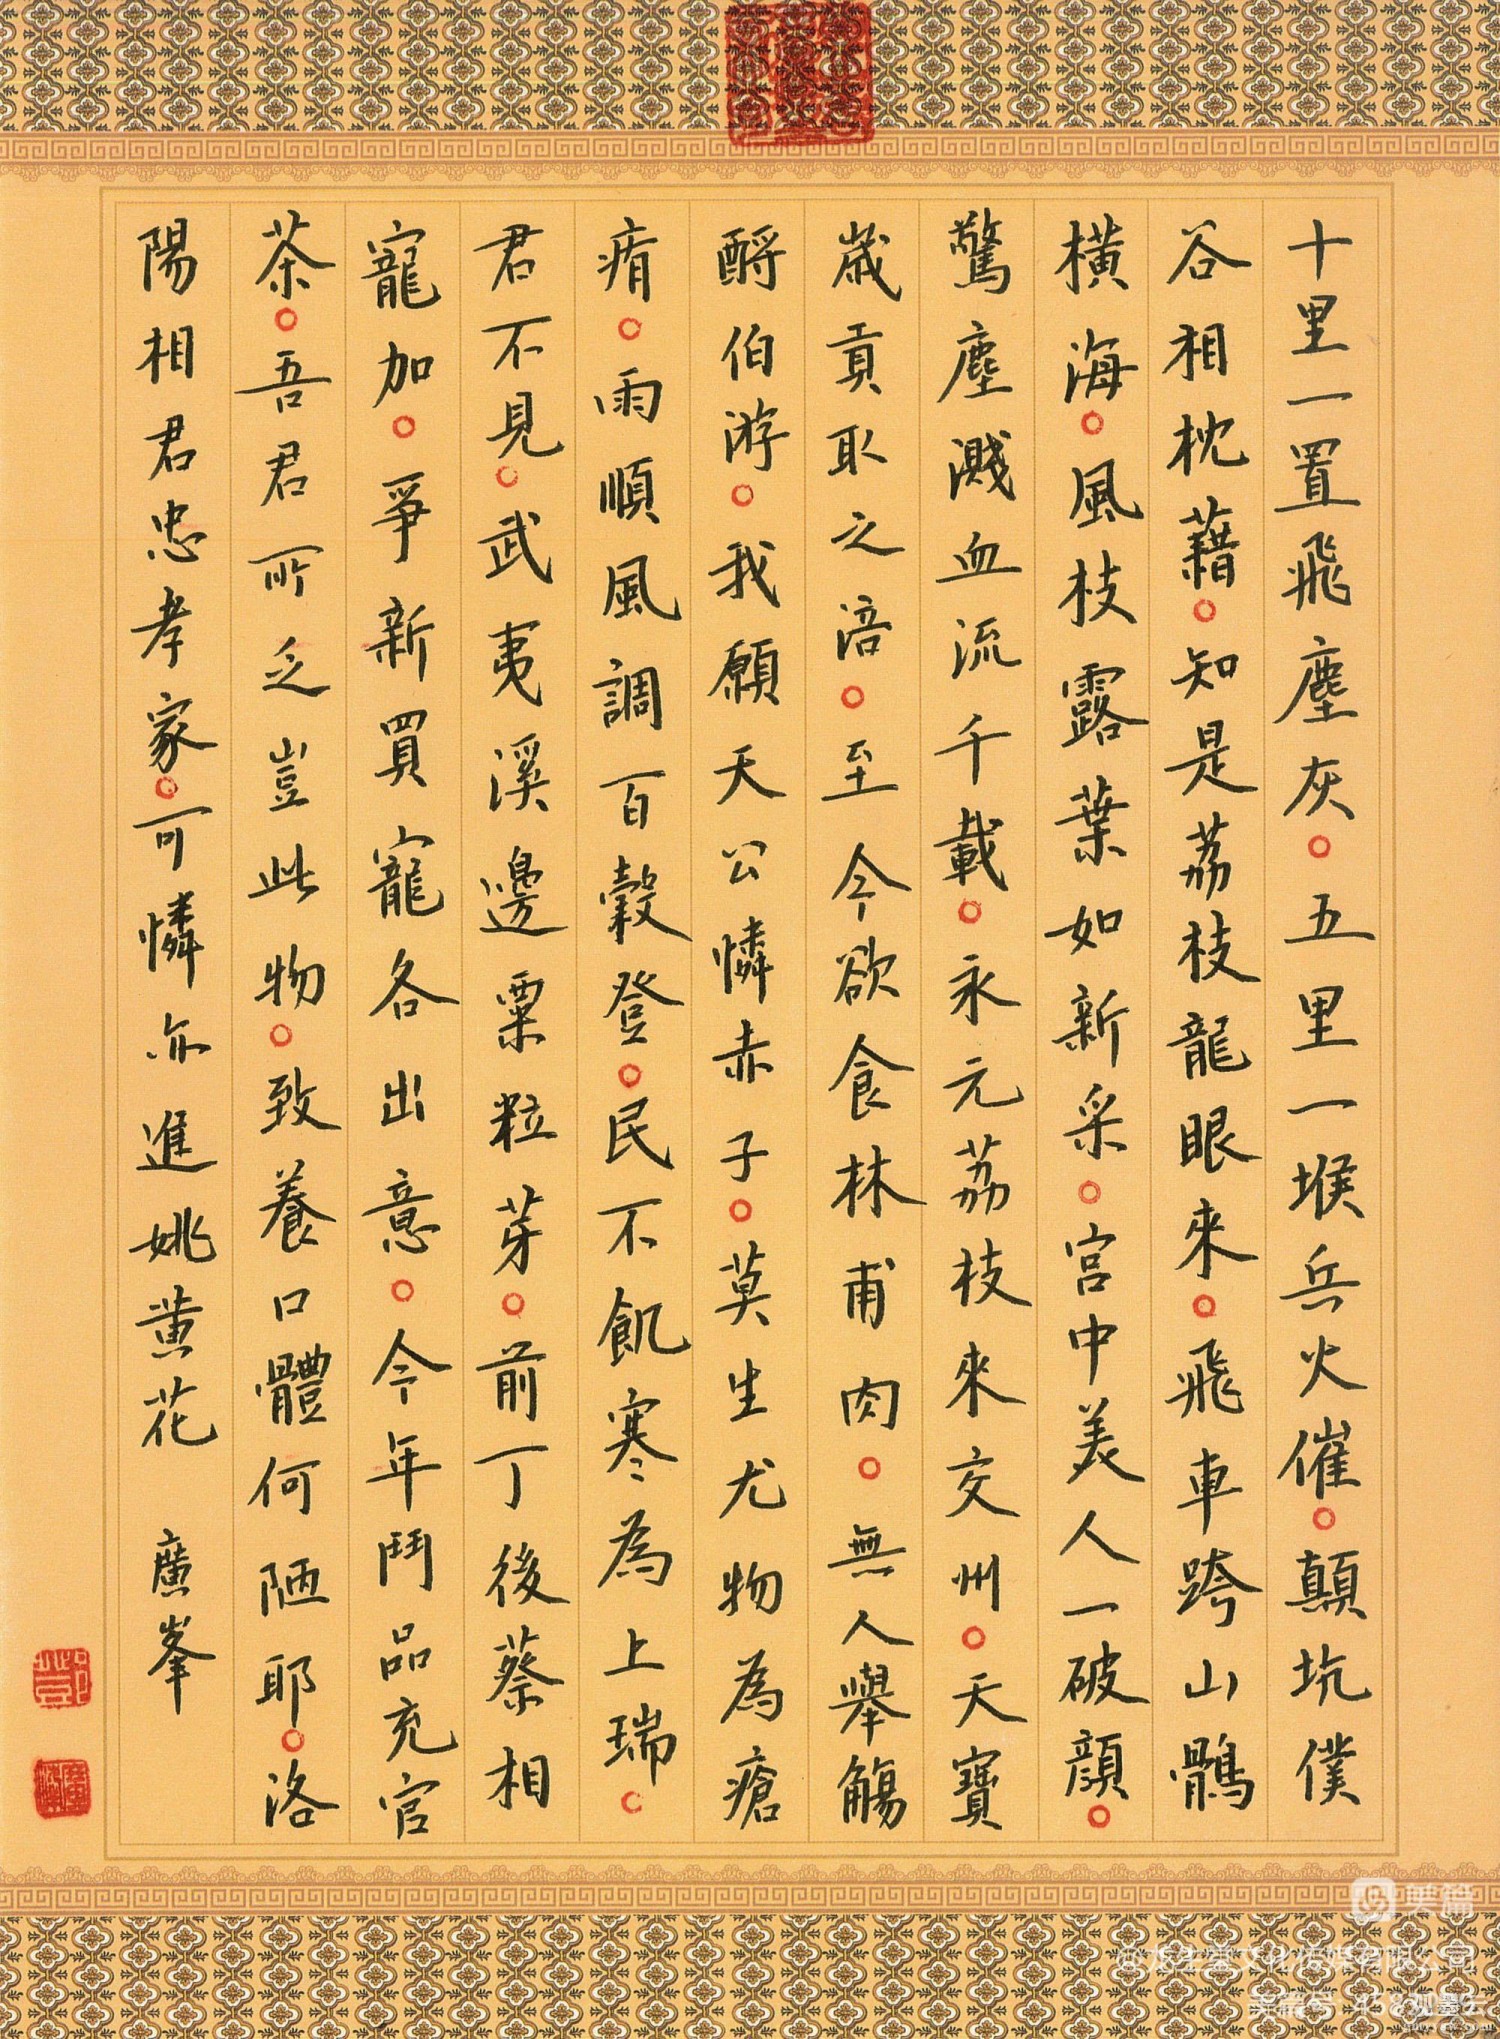 十里一置飛塵灰。五里一堠兵火催。顛坑僕
谷相枕藉。知是荔枝龍眼來。飛車跨山鶻
橫海。風枝露葉如新采。宮中美人一破顏。
驚塵濺血流千載。永元荔枝來交州。天寶
歲貢取之涪。至今欲食林甫肉。無人舉觴
酹伯游。我願天公憐赤子。莫生尤物為瘡
痏。雨順風調百穀登。民不飢寒為上瑞。
君不見。武夷溪邊粟粒芽。前丁後蔡相
寵加。爭新買寵各出意。今年鬥品充官
茶。吾君所乏豈此物。致養口體何陋耶。洛
陽相君忠孝家。可憐亦進姚黄花 廣峯
美篇